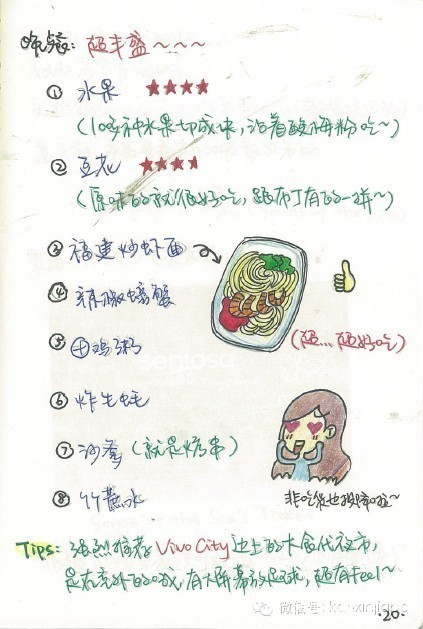 晚餐: 超丰盛~~~~
① 水果 ★★★★
(10多种水果切成块, 沾着酸梅粉吃~)
② 豆花 ★★★★
(原味的就很好吃, 跟布丁有的一拼~)
③ 福建炒虾面
④ 辣椒螃蟹
(超... 超好吃)
⑤ 田鸡粥
⑥ 炸生蚝
⑦ 沙爹 (就是烤串)
⑧ 竹蔗水
非吃货也投降啦~
Tips: 强烈推荐 Vivo City 边上的大食代夜市,
是在室外的哦, 有大屏幕放足球, 超有feel~
微信号:
·20·